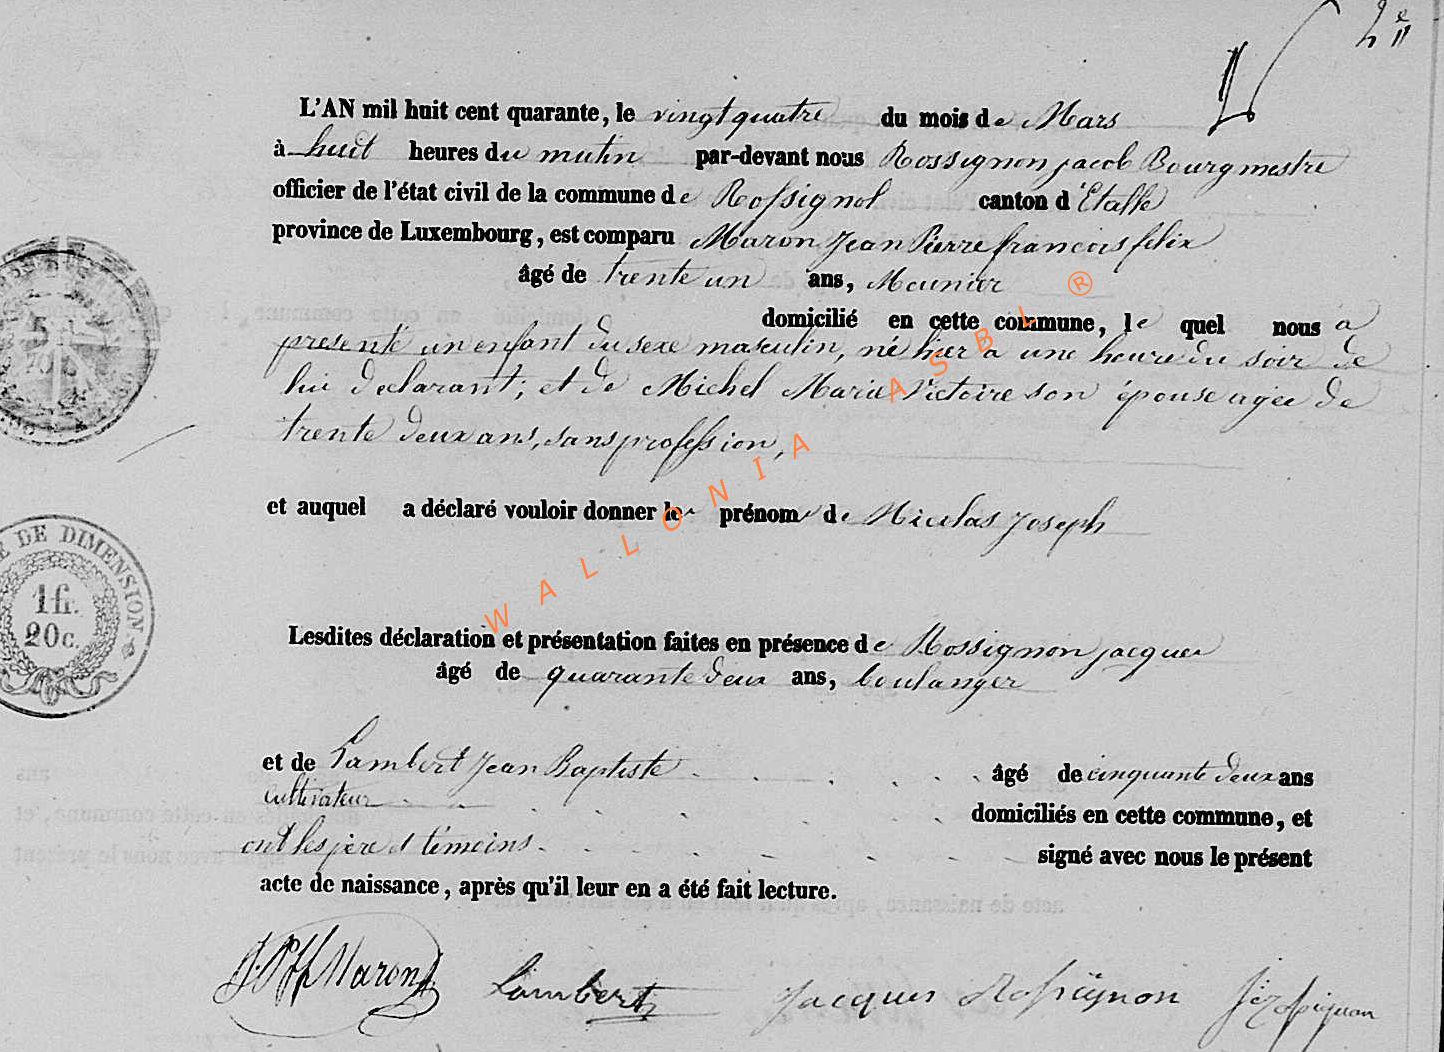 2e
L'AN mil huit cent quarante, le vingt quatre du mois de Mars
à huit heures du matin par-devant nous Rossignon jacob Bourgmestre
officier de l'état civil de la commune de Rossignol canton d'Etalle
province de Luxembourg, est comparu Maron Jean Pierre françois felix
âgé de trente un ans, Meunier
domicilié en cette commune, le quel nous a
presenté un enfant du sexe masculin, né hier a une heure du soir de
lui declarant; et de Michel Marie Victoire son épouse agée de
trente deux ans, sans profession,
et auquel a déclaré vouloir donner le prénom de Nicolas Joseph
Lesdites déclaration et présentation faites en présence de Rossignon jacques
âgé de quarante deux ans, boulanger
et de Lambert Jean Baptiste âgé de cinquante deux ans
cultivateur domiciliés en cette commune, et
ont les père et témoins signé avec nous le présent
acte de naissance, après qu'il leur en a été fait lecture.
Maron Lambert Jacques Rossignon J. Rossignon
DE DIMENSION
1 fr.
20 c.
WALLONIA ASBL ®